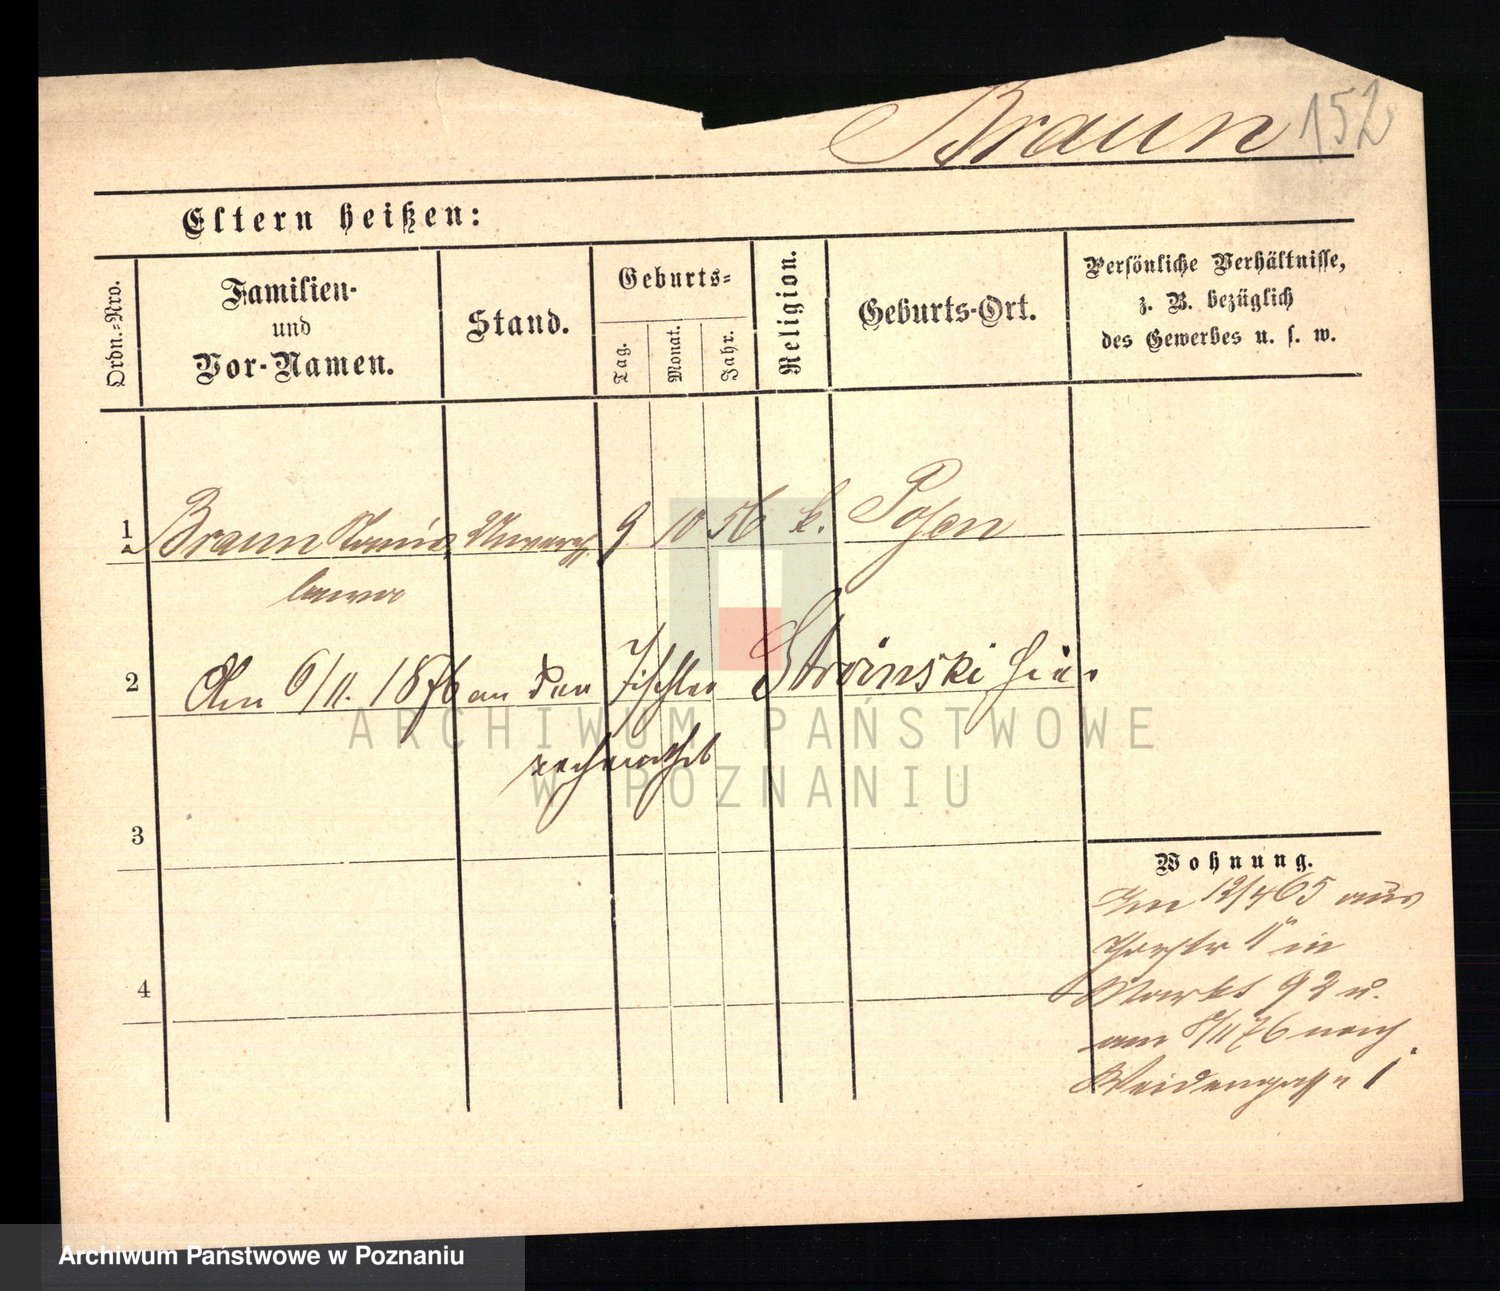 Braun 152
Eltern heißen:
Ordn.-Nro.
Familien-
und
Vor-Namen.
Stand.
Geburts-
Tag.
Monat.
Jahr.
Religion.
Geburts-Ort.
Persönliche Verhältnisse,
z. B. bezüglich
des Gewerbes u. s. w.
1 Braun 9 10 56 k. Posen
2 Am 6/11. 1876 an den Tischler Stroinski hier
verheirathet
3
Wohnung.
12/4 65 aus
11 in
4
Markt 92 u.
am 8/11 76 nach
Weidengasse 1
ARCHIWUM PAŃSTWOWE
W POZNANIU
Archiwum Państwowe w Poznaniu